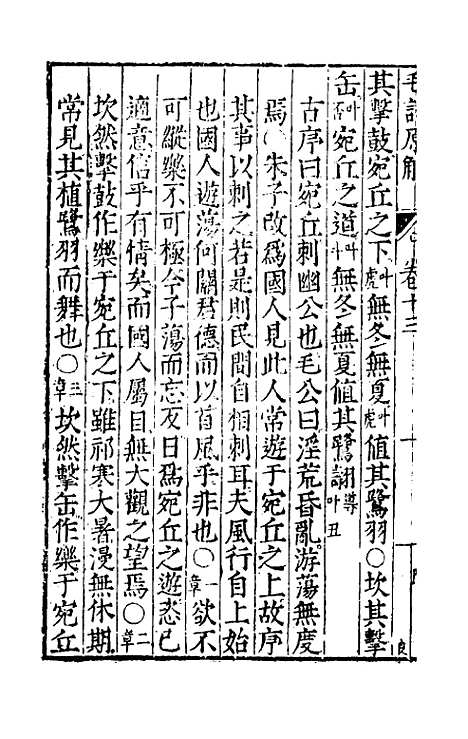 毛詩原解 卷十三
其擊鼓宛丘之下叶虎無冬無夏叶虎值其鷺羽○坎其擊
缶叶否宛丘之道叶斗無冬無夏值其鷺翿導叶丑
古序曰宛丘刺幽公也毛公曰淫荒昏亂游蕩無度
焉○朱子改爲國人見此人常遊于宛丘之上故序
其事以刺之若是則民間自相刺耳夫風行自上始
也國人遊蕩何關君德而以首風乎非也○一章欲不
可縱樂不可極今子蕩而忘反日爲宛丘之遊恣已
適意信乎有情矣而國人屬目無大觀之望焉○二章
坎然擊鼓作樂于宛丘之下雖祁寒大暑漫無休期
常見其植鷺羽而舞也○三章坎然擊缶作樂于宛丘